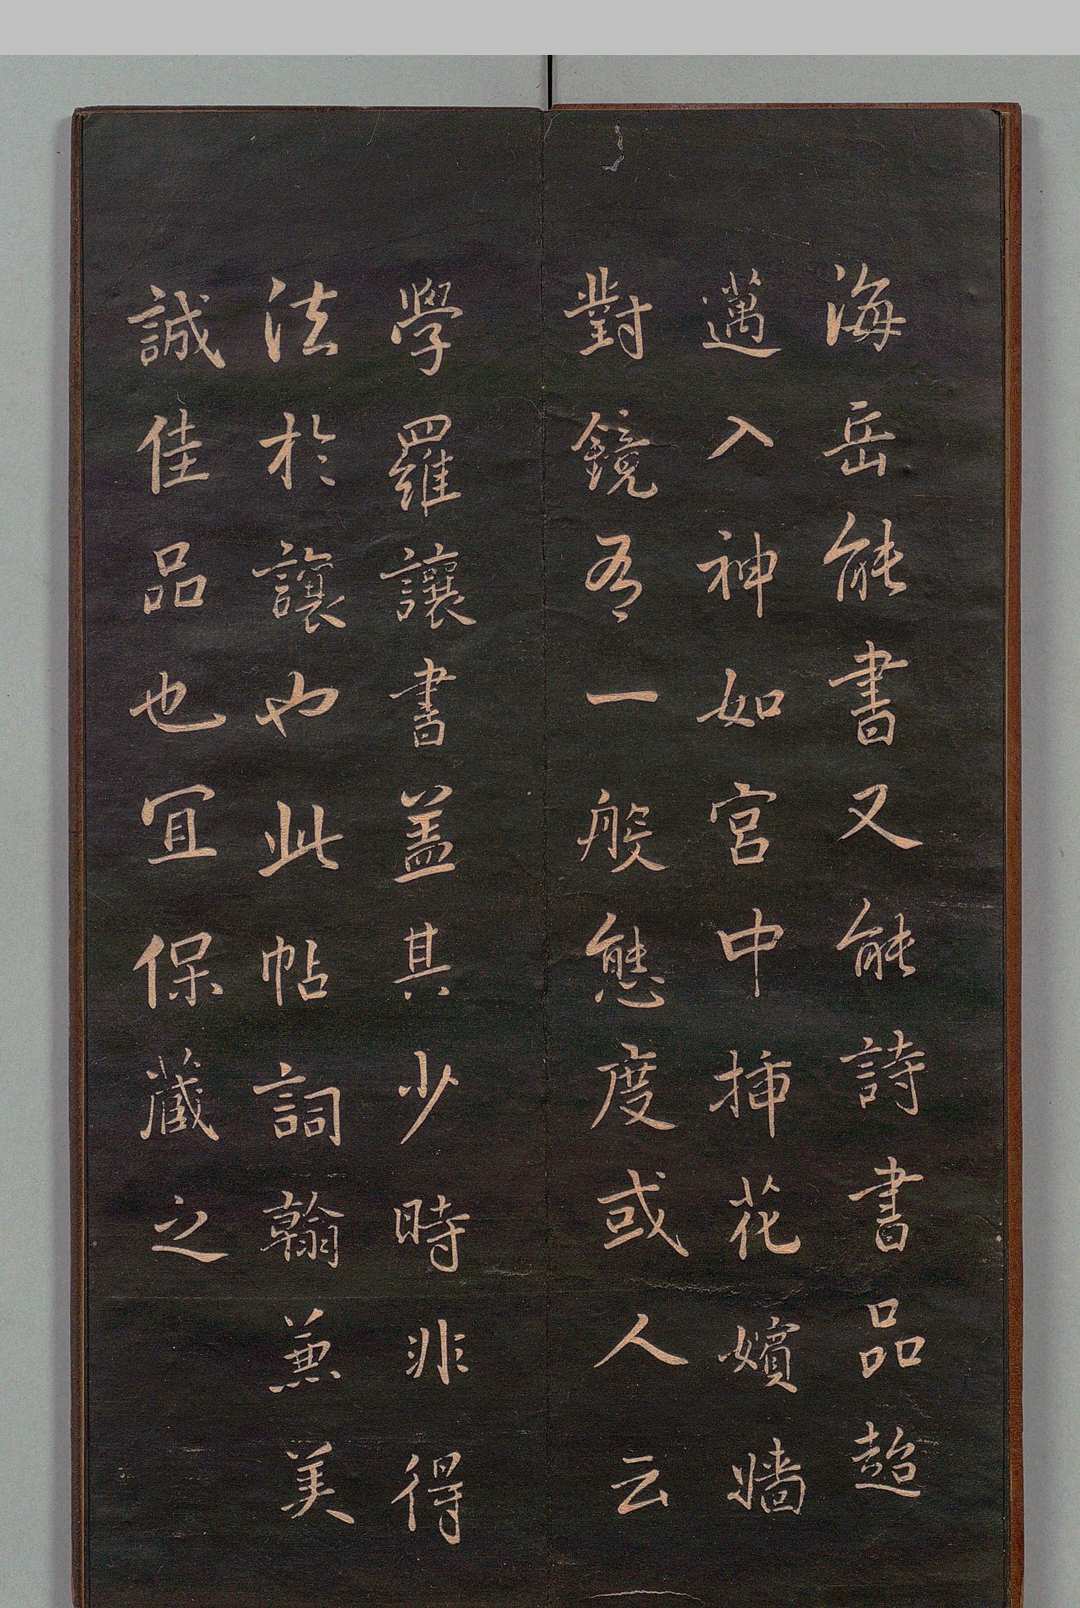 海岳能書又能詩書品超
邁入神如宮中揷花嬪嬙
對鏡有一般態度或人云
學羅讓書盖其少時非得
法於讓也此帖詞翰兼美
誠佳品也宜保藏之